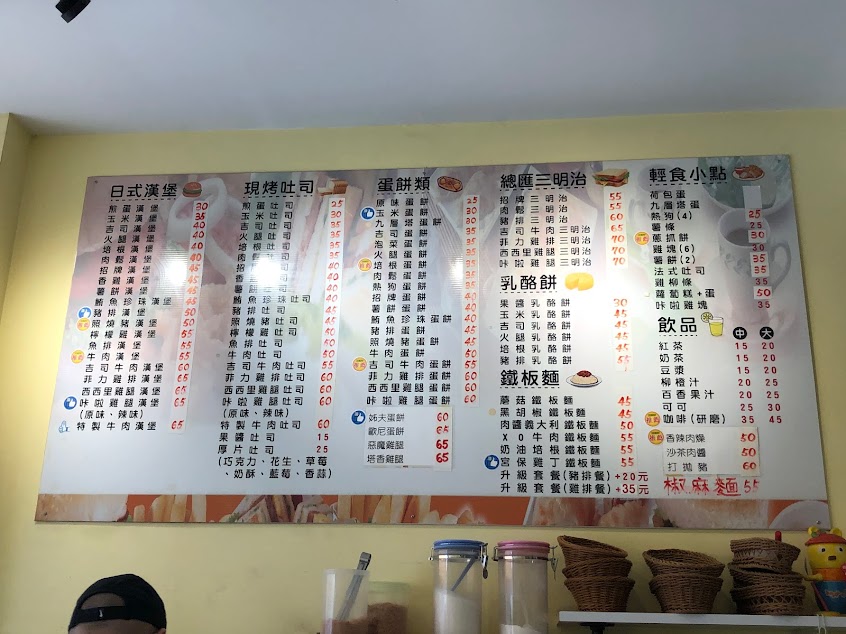 日式漢堡
煎蛋漢堡 30
玉米漢堡 35
吉司漢堡 40
火腿漢堡 40
培根漢堡 40
肉鬆漢堡 40
招牌漢堡 45
香雞漢堡 45
薯餅漢堡 45
鮪魚珍珠漢堡 45
豬排漢堡 50
照燒豬漢堡 50
檸檬雞漢堡 55
魚排漢堡 55
牛肉漢堡 55
吉司牛肉漢堡 60
菲力雞排漢堡 65
西西里雞腿漢堡 65
咔啦雞腿漢堡 65
(原味、辣味)
特製牛肉漢堡 65
現烤吐司
煎蛋吐司 25
玉米吐司 30
吉司吐司 35
火腿吐司 35
培根吐司
肉鬆吐司
招牌吐司
香雞吐司
薯餅吐司
鮪魚珍珠吐司
豬排吐司 45
照燒豬吐司
檸檬雞吐司
魚排吐司
牛肉吐司
吉司牛肉吐司 55
菲力雞排吐司 60
西西里雞腿吐司 60
咔啦雞腿吐司 60
(原味、辣味)
特製牛肉吐司 60
果醬吐司 15
厚片吐司 25
(巧克力、花生、草莓
、奶酥、藍莓、香蒜)
蛋餅類
原味蛋餅 25
玉米蛋餅 30
九層塔蛋餅 30
吉司蛋餅
泡菜蛋餅
火腿蛋餅
培根蛋餅
肉鬆蛋餅
熱狗蛋餅
招牌蛋餅
薯餅蛋餅
鮪魚珍珠蛋餅
豬排蛋餅 45
照燒豬蛋餅
牛肉蛋餅 50
吉司牛肉蛋餅
菲力雞排蛋餅 60
西西里雞腿蛋餅 60
咔啦雞腿蛋餅 60
姊夫蛋餅 60
歐尼蛋餅 65
惡魔雞腿 65
塔香雞腿 65
總匯三明治
招牌三明治 55
肉鬆三明治 55
吉司牛肉三明治 65
菲力雞排三明治 70
西西里雞腿三明治 70
咔啦雞腿三明治 70
乳酪餅
果醬乳酪餅 30
玉米乳酪餅 45
吉司乳酪餅 45
火腿乳酪餅 45
培根乳酪餅 45
豬排乳酪餅 55
鐵板麵
蘑菇鐵板麵 45
黑胡椒鐵板麵 45
肉醬義大利鐵板麵 50
XO牛肉鐵板麵 55
奶油培根鐵板麵 55
宮保雞丁鐵板麵 55
升級套餐(豬排餐)+20元
升級套餐(雞排餐)+35元
輕食小點
荷包蛋
九層塔蛋
熱狗(4) 25
薯條 25
蔥抓餅 30
雞塊(6) 30
薯餅(2) 35
法式吐司 35
雞柳條 35
蘿蔔糕+蛋 50
咔啦雞塊 35
飲品 中 大
紅茶 15 20
奶茶 15 20
豆漿 15 20
柳橙汁 20 25
百香果汁 20 25
可可 25 30
咖啡(研磨) 35 45
香辣肉燥 50
沙茶肉醬 50
打拋豬 60
椒麻麵 55